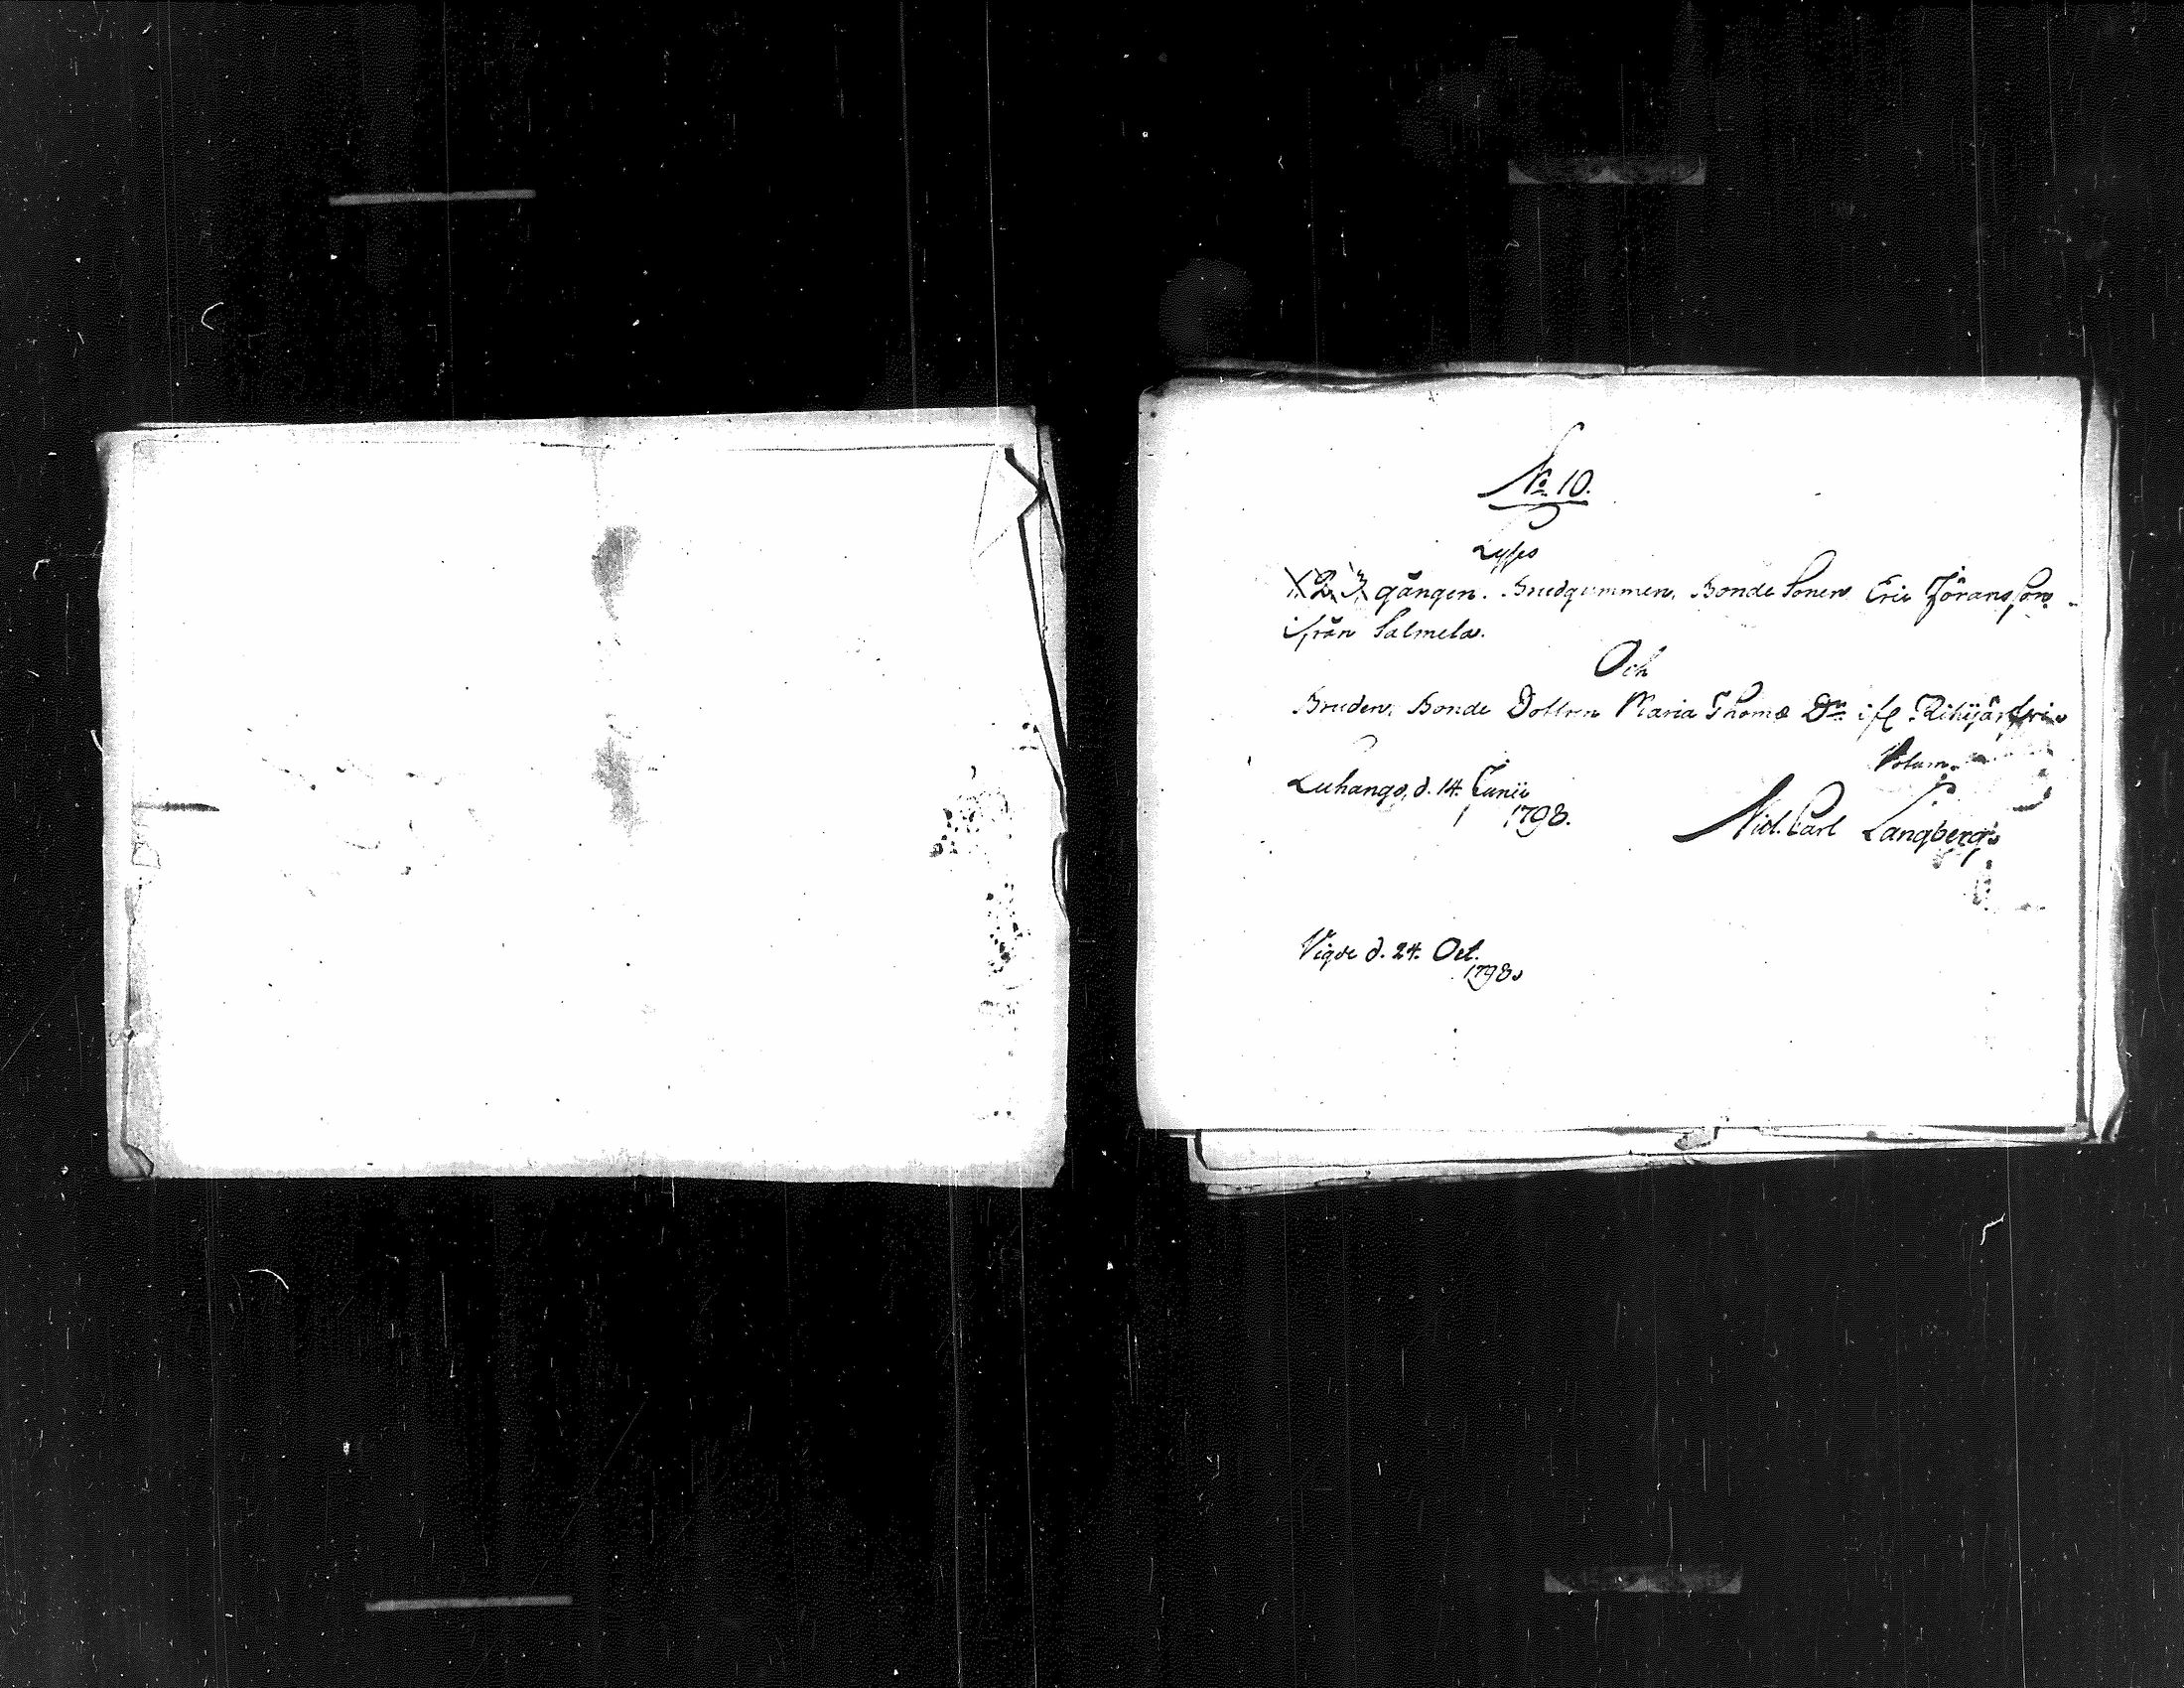 No 10.
Lyses
1. 2. 3. gången. Brudgummen, Bonde Sonen Eric Jöransson
ifrån Salmela.
Och
Bruden, Bonde Dottren Maria Thomæ Dr. ifr.
Luhango, d. 14. Junii
1798.
Nicl. Carl Langberg
Vigde d. 24. Oct.
1798.